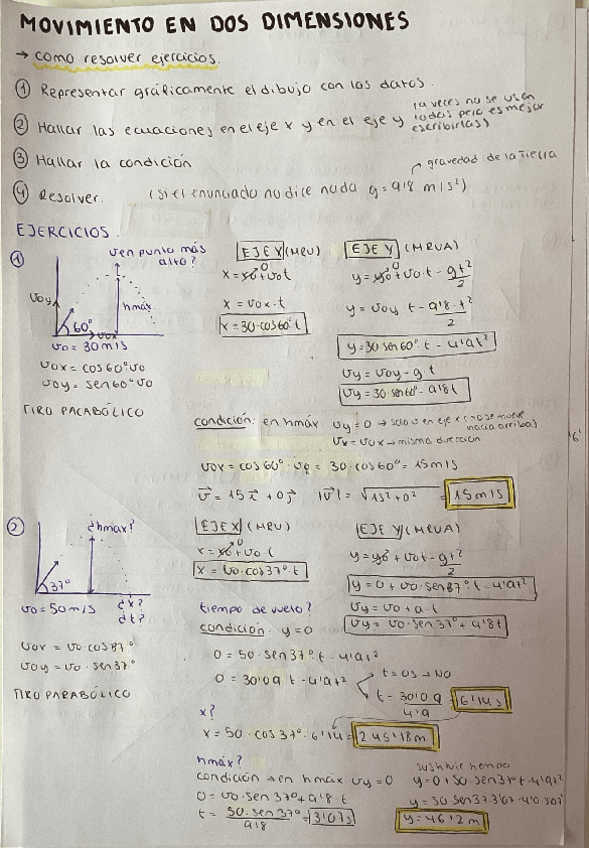 MOVIMIENTO EN DOS DIMENSIONES
→ como resolver ejercicios.
① Representar gráficamente el dibujo con los datos.
② Hallar las ecuaciones en el eje x y en el eje y (a veces no se usan todas pero es mejor escribirlas)
③ Hallar la condición
④ Resolver. (si el enunciado no dice nada g=9'8 m/s²)
gravedad de la tierra
EJERCICIOS.
①
v en punto más alto?
voy
hmáx
60°
vox
vo = 30m/s
vox = cos60° vo
voy = sen60° vo
TIRO PARABÓLICO
EJE X (MRU)
x = xo + vo t
0
x = vox . t
x = 30·cos60° t
EJE Y (MRUA)
y = yo + vo·t - gt²/2
0
y = voy t - 9'8·t²/2
y = 30 sen60°·t - 4'9t²
vy = voy - g.t
vy = 30·sen60 - 9'8t
condición: en hmáx vy = 0 → solo v en eje x (no se mueve hacia arriba)
vx = vox → misma dirección
vox = cos60°·vo = 30·cos60° = 15m/s
v = 15i + 0j |v| = √15² + 0² = 15m/s
'6'
②
¿hmax?
37°
vo = 50m/s
¿x?
¿t?
vox = vo cos37°
voy = vo· sen37°
TIRO PARABÓLICO
EJE X (MRU)
x = xo + vo·t
0
x = vo·cos37°·t
EJE Y (MRUA)
y = yo + vot - gt²/2
y = 0 + vo·sen37°·t - 4'9t²
vy = vo + a.t
vy = vo·sen37° + 9'8t
tiempo de vuelo?
condición y=0
0 = 50·sen37° t - 4'9t²
0 = 30'09 t - 4'9t²
t = 0s → NO
t = 30'09/4'9 = 6'14s
x?
x = 50·cos37°·6'14 = 245'18m
hmáx?
condición → en hmáx vy = 0
0 = vo·sen37° + 9'8·t
t = 50·sen37°/9'8 = 3'07s
sustituir tiempo
y = 0 + 50·sen37°t - 4'9t²
y = 50 sen37·3'07 - 4'9·3'07²
y = 46'2m